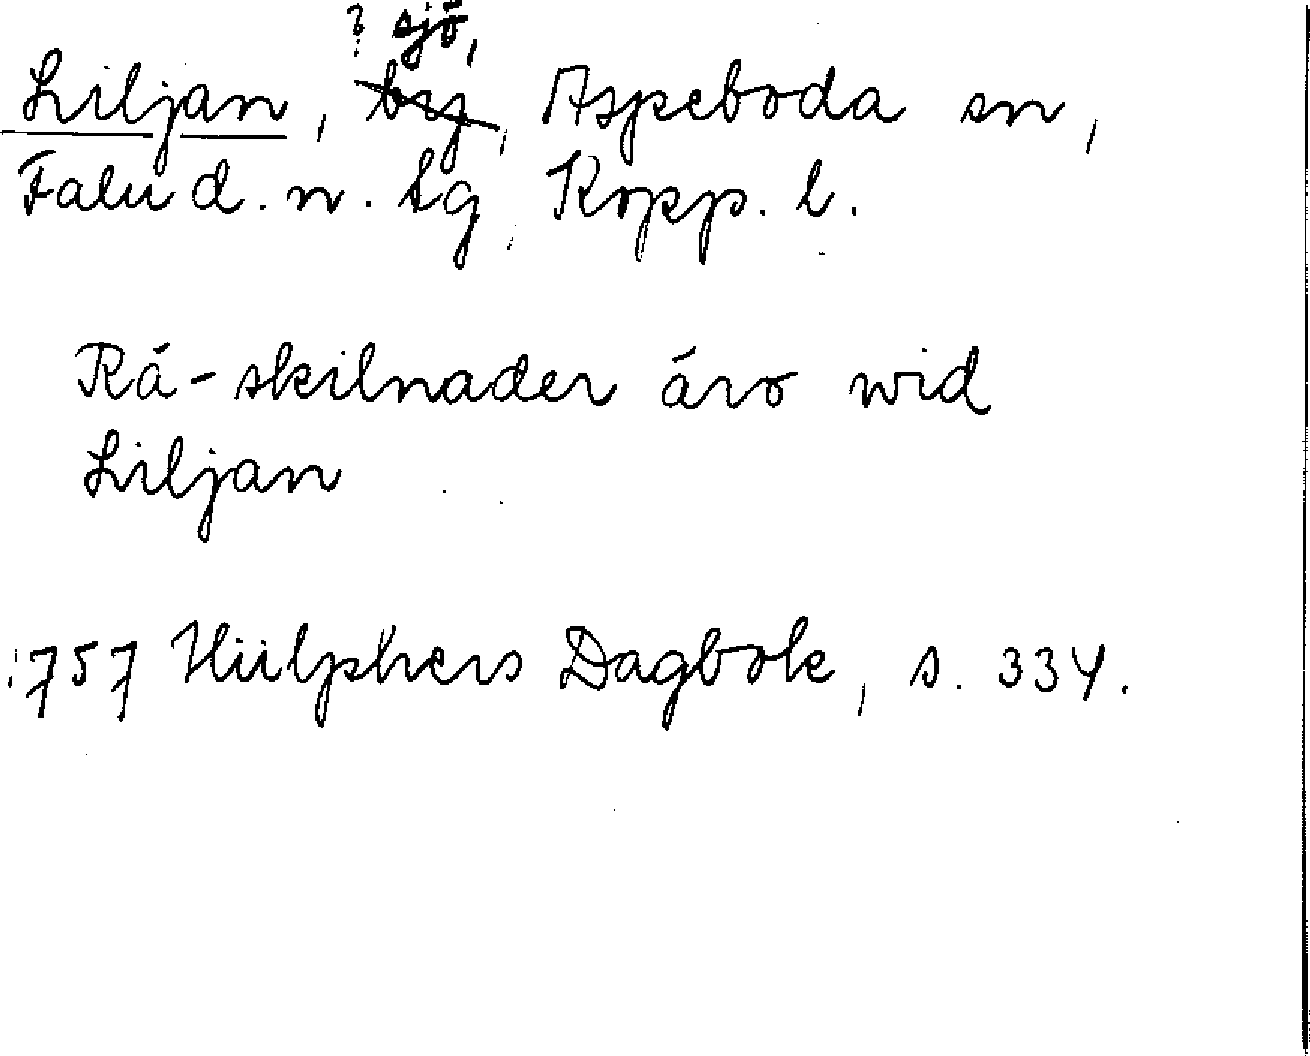 ? sjö,
Liljan, by, Aspeboda sn,
Falu d. n. tg, Kopp. l.
Rå-skilnader äro wid
Liljan
1757 Hülphers Dagbok, s. 334.